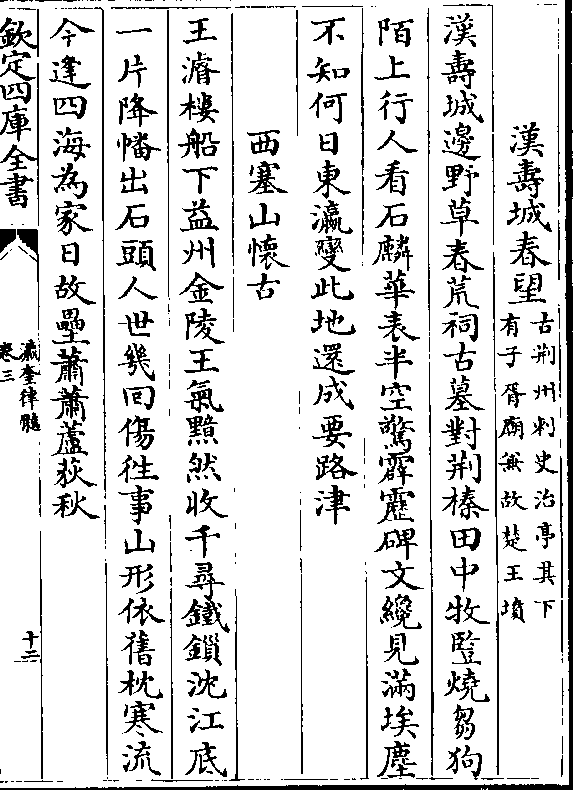 漢壽城春望
古荆州刺史治亭其下
有子胥廟無故楚王墳
漢壽城邊野草春荒祠古墓對荆榛田中牧豎燒芻狗
陌上行人看石麟華表半空驚霹靂碑文纔見滿埃塵
不知何日東瀛變此地還成要路津
西塞山懷古
王濬樓船下益州金陵王氣黯然收千尋鐵鎖沈江底
一片降幡出石頭人世幾回傷徃事山形依舊枕寒流
今逢四海為家日故壘蕭蕭蘆荻秋
欽定四庫全書
瀛奎律髓
卷三
十二